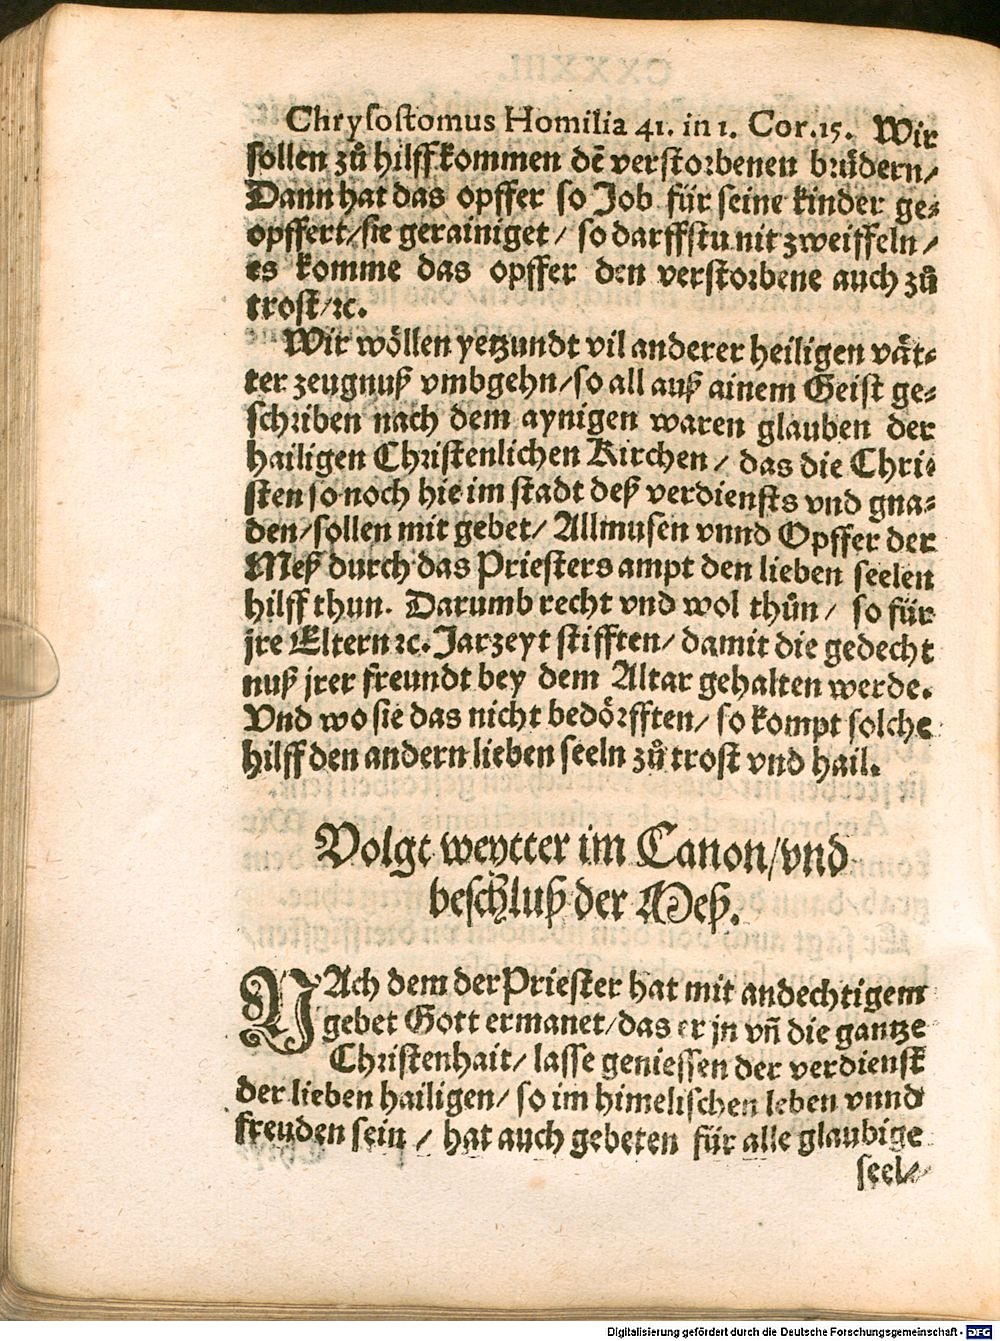 Chryſoſtomus Homilia 41. in 1. Cor. 15. Wir
ſollen zů hilff kommen dē verſtorbenen brůdern/
Dann hat das opffer ſo Job für ſeine kinder ge⸗
opffert/ ſie gerainiget / ſo darffſtu nit zweiffeln /
es komme das opffer den verſtorbene auch zů
troſt/ ꝛc.
Wir wöllen yetzundt vil anderer heiligen vät⸗
ter zeugnuß vmbgehn/ ſo all auß ainem Geiſt ge⸗
ſchriben nach dem aynigen waren glauben der
hailigen Chriſtenlichen Kirchen / das die Chri⸗
ſten ſo noch hie im ſtadt deß verdienſts vnd gna⸗
den/ ſollen mit gebet/ Allmuſen vnnd Opffer der
Meß durch das Prieſters ampt den lieben ſeelen
hilff thun. Darumb recht vnd wol thůn / ſo für
jre Eltern ꝛc. Jarzeyt ſtifften/ damit die gedecht
nuß jrer freundt bey dem Altar gehalten werde.
Vnd wo ſie das nicht bedörfften/ ſo kompt ſolche
hilff den andern lieben ſeeln zů troſt vnd hail.
Volgt weytter im Canon/ vnd
beſchluß der Meß.
NAch dem der Prieſter hat mit andechtigem
gebet Gott ermanet/ das er jn vñ die gantze
Chriſtenhait/ laſſe genieſſen der verdienſt
der lieben hailigen/ ſo im himeliſchen leben vnnd
freuden ſein / hat auch gebeten für alle glaubige
ſeel⸗
Digitalisierung gefördert durch die Deutsche Forschungsgemeinschaft - DFG